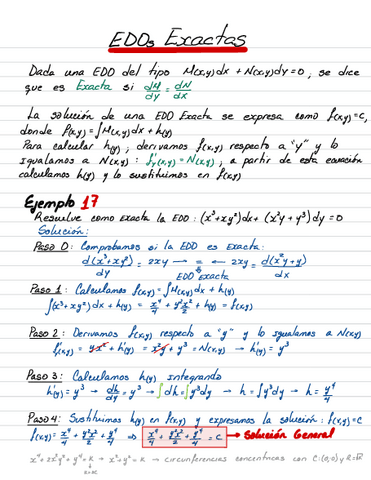 EDOs Exactas
Dada una EDO del tipo M(x,y)dx + N(x,y)dy = 0, se dice
que es Exacta si dM/dy = dN/dx
La solución de una EDO Exacta se expresa como f(x,y)=C,
donde f(x,y)=∫M(x,y)dx + h(y)
Para calcular h(y), derivamos f(x,y) respecto a "y" y lo
igualamos a N(x,y): f'y(x,y)=N(x,y), a partir de esta ecuación
calculamos h(y) y lo sustituimos en f(x,y)
Ejemplo 17
Resuelve como exacta la EDO: (x³+xy²)dx + (x²y+y³)dy = 0
Solución:
Paso 0: Comprobamos si la EDO es Exacta:
d(x³+xy²)/dy = 2xy → = ← 2xy = d(x²y+y³)/dx
EDO Exacta
Paso 1: Calculamos f(x,y)=∫M(x,y)dx + h(y)
∫(x³+xy²)dx + h(y) = x⁴/4 + y²x²/2 + h(y) = f(x,y)
Paso 2: Derivamos f(x,y) respecto a "y" y lo igualamos a N(x,y)
f'(x,y) = yx² + h'(y) = x²y + y³ = N(x,y) → h'(y) = y³
Paso 3: Calculamos h(y) integrando
h'(y) = y³ → dh/dy = y³ → ∫dh = ∫y³dy → h = ∫y³dy → h = y⁴/4
Paso 4: Sustituimos h(y) en f(x,y) y expresamos la solución: f(x,y)=C
f(x,y) = x⁴/4 + y²x²/2 + y⁴/4 ⇒ x⁴/4 + y²x²/2 + y⁴/4 = C → Solución General
x⁴ + 2x²y² + y⁴ = K → x² + y² = K → circunferencias concentricas con C:(0,0) y R=√K